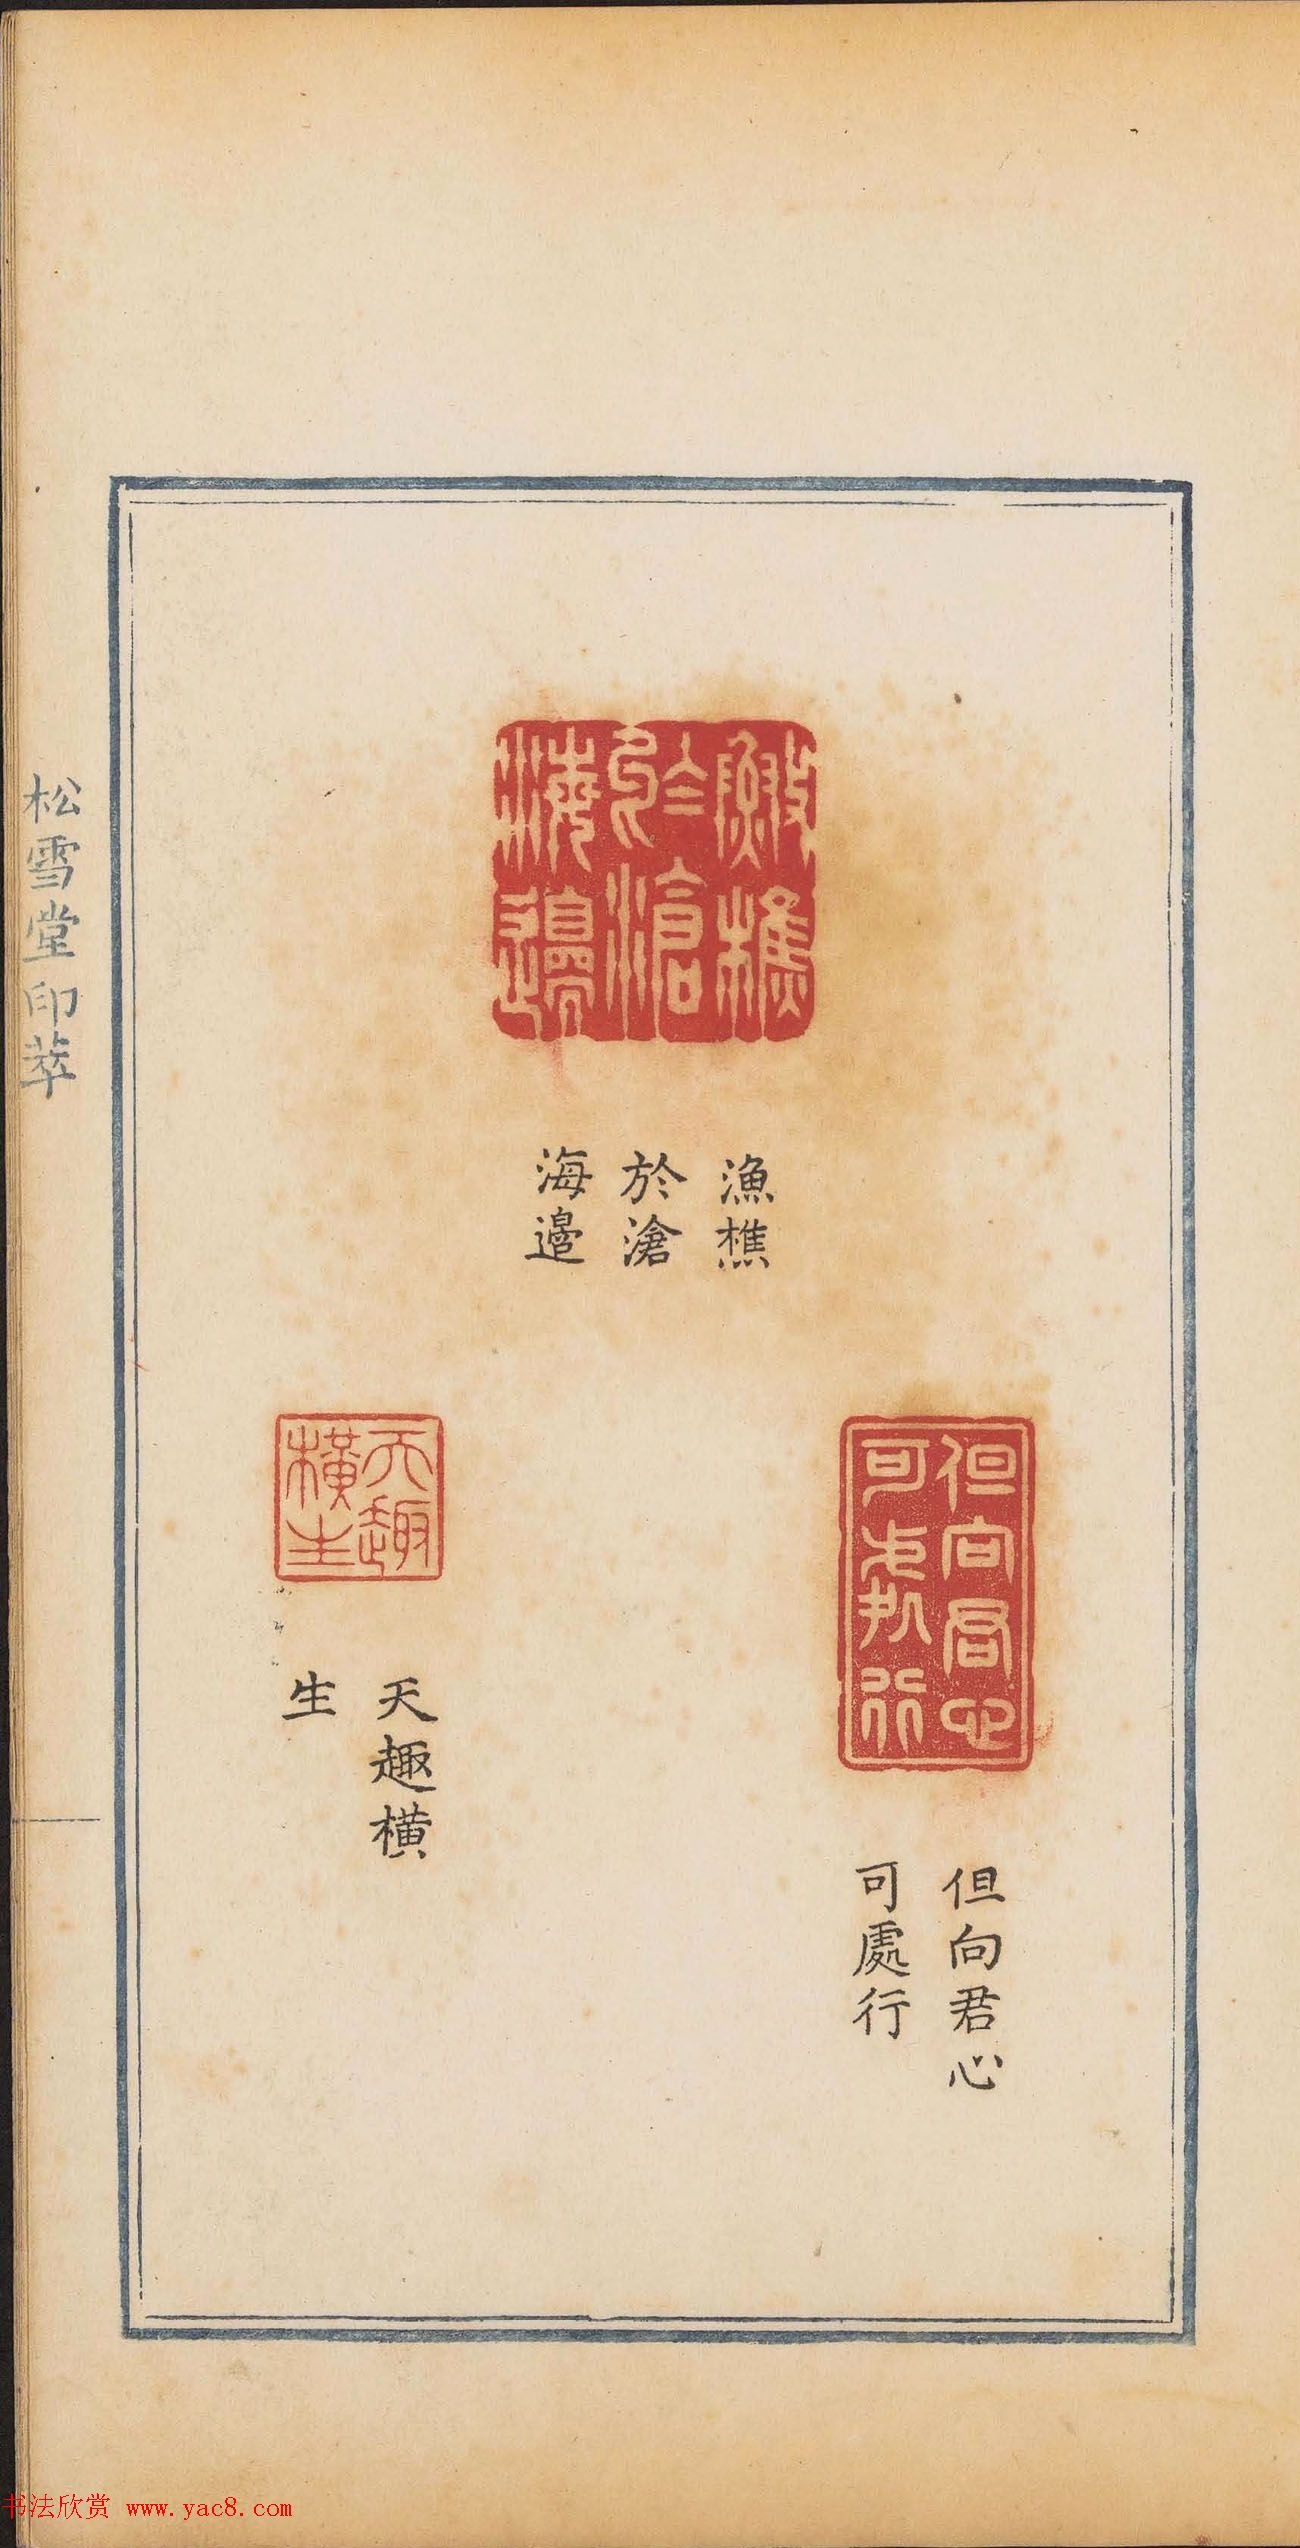 漁樵
於滄
海邊
漁樵
於滄
海邊
但向君心
可處行
但向君心
可處行
天趣
橫生
天趣橫
生
松雪堂印萃
书法欣赏 www.yac8.com